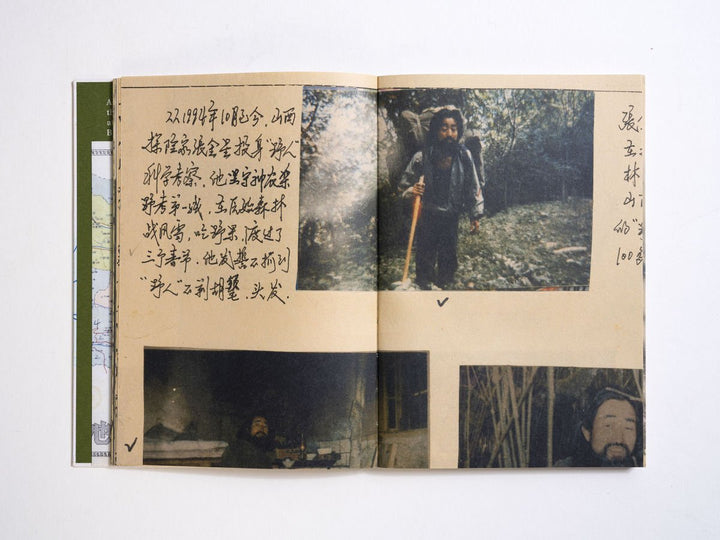 22.1994年10月至今,山西
探险家張金星投身"野人"
科学考察,他坚守神农架
野考第一线,在原始森林
战风雪,吃野果,度过了
三个春节.他发誓不抓到
"野人"不剃胡鬚.头发.
張
在
林
山
的"
100